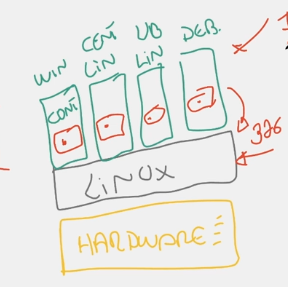 WIN
CENT
LIN
UB
LIN
DEB.
CONT
326
LINUX
HARDWARE